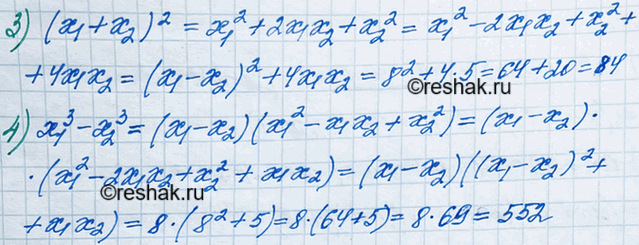 3) (x₁+x₂)² = x₁²+2x₁x₂+x₂² = x₁²-2x₁x₂+x₂²+
+4x₁x₂ = (x₁-x₂)²+4x₁x₂ = 8²+4·5=64+20=84
©reshak.ru
4) x₁³-x₂³ = (x₁-x₂)(x₁²-x₁x₂+x₂²) = (x₁-x₂)·
·(x₁²-2x₁x₂+x₂²+x₁x₂) = (x₁-x₂)((x₁-x₂)²+
©reshak.ru
+x₁x₂) = 8·(8²+5)=8·(64+5)=8·69=552